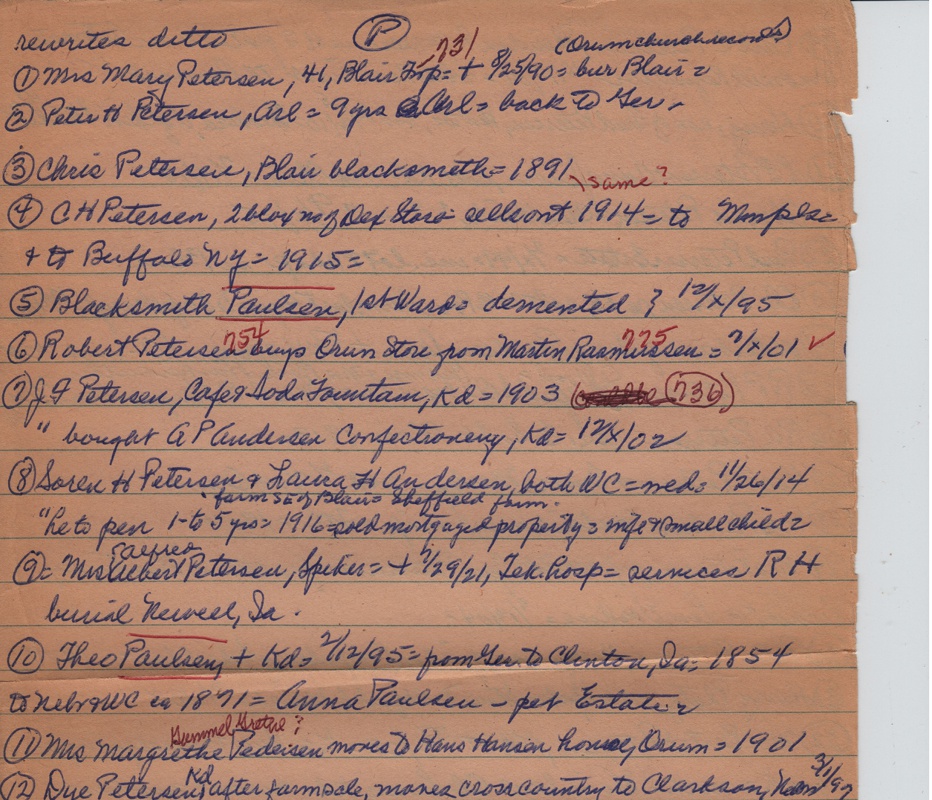 rewrites ditto (P)
731 (Orum church records)
① Mrs Mary Petersen, 41, Blair = + 8/25/90 = bur Blair =
② Peter H Petersen, Arl = 9 yrs @ Arl = back to Ger.
③ Chris Petersen, Blair blacksmeth = 1891
same?
④ C H Petersen, 2 blox no of Dex Store = sells out 1914 = to Mnpls =
+ to Buffalo NY = 1915 =
⑤ Blacksmith Paulsen, 1st Ward = demented } 12/x/95
⑥ Robert Petersen 754 buys Orum Store from Martin Rasmussen 775 = /x/01 ✓
⑦ J F Petersen, Cafe & Soda Fountain, Kd = 1903 736
" bought A P Andersen Confectionery, Kd = 12/x/02
⑧ Soren H Petersen & Laura H Andersen, both WC = med = 11/26/14
farm SE of Blair = Sheffield farm.
" he to pen 1- to 5 yrs = 1916 = sold mortgaged property = wife & small child =
Alfred
⑨ = Mrs Petersen, Spiker = + /29/21, Tek. hosp = services R H
burial Newell, Ia.
⑩ Theo Paulsen, + Kd = 2/12/95 = from Ger. to Clinton, Ia = 1854
to Nebr & WC ca 1871 = Anna Paulsen - pet Estate =
Gummel Grethe?
⑪ Mrs Margrethe Pedersen moves to Hans Hansen home, Orum = 1901
⑫ Due Petersen, Kd after farm sale, moves cross country to Clarkson, Nebr